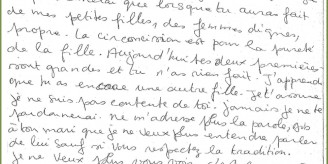 que lorsque tu auras fait
de mes petites filles, des femmes dignes,
propre. La circoncision est pour la pureté
de la fille. Aujourd'hui tes deux premières
sont grandes et tu n'as rien fait. J'apprends
que tu as encore une autre fille. Jet'avoue
je ne suis pas contente de toi. Jamais je ne te
pardonnerai. Ne m'adresse plus la parole, dis
à ton mari que je ne veux plus entendre parler
de lui sauf si vous respectez la tradition.
Je ne veux plus vous